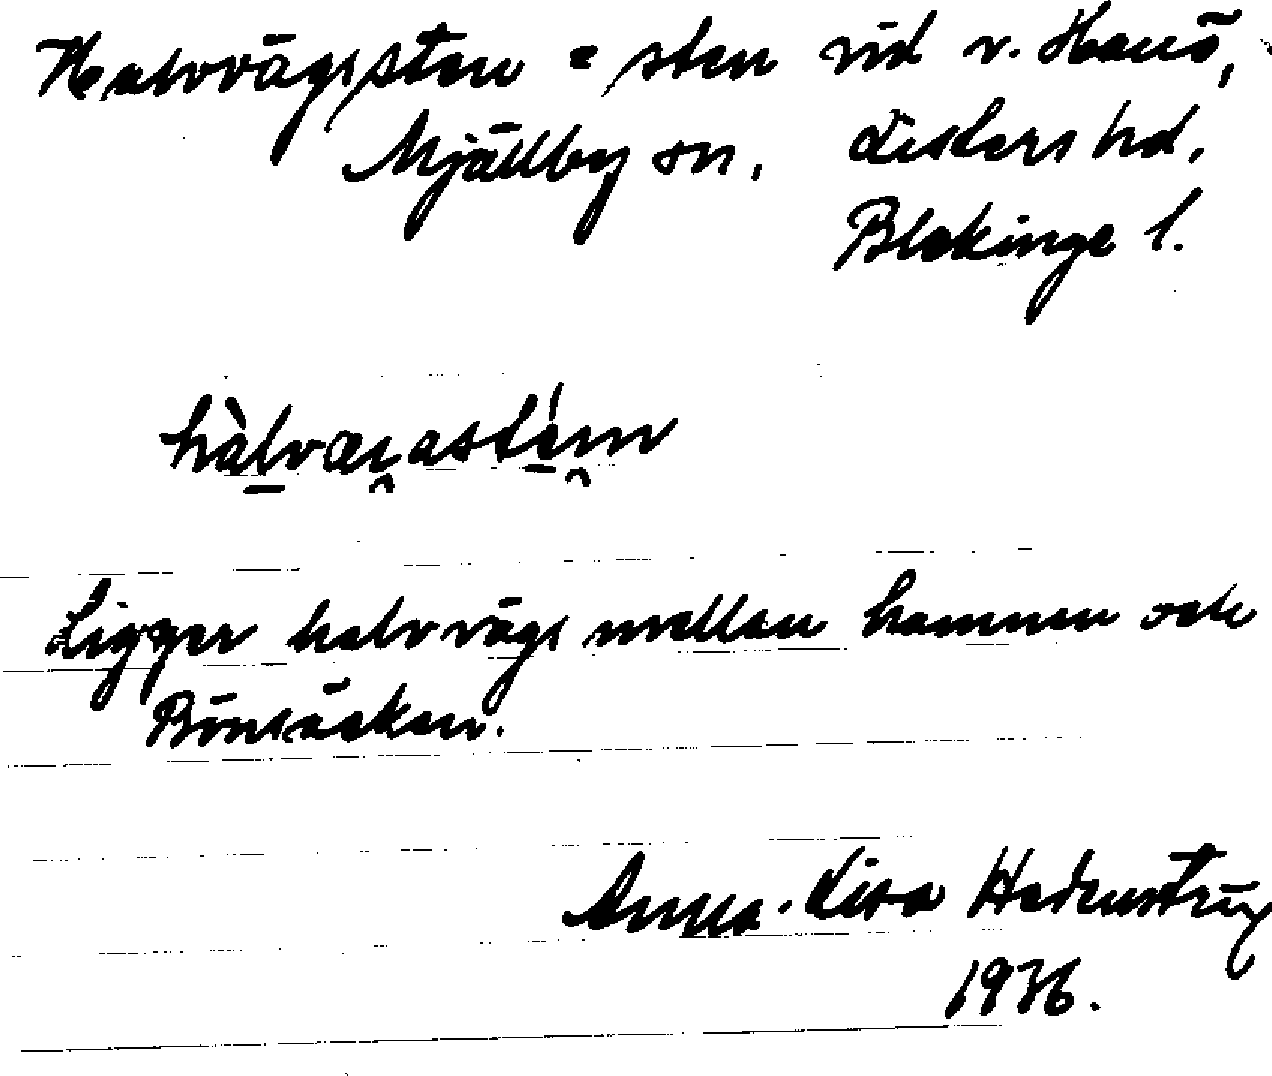 Halvvägssten = sten vid v. Hanö,
Mjällby sn, Listers hd,
Blekinge l.
hàlvæi̯astéi̯n
Ligger halvvägs mellan hamnen och
Bönsäcken.
Anna-Lisa
1936.